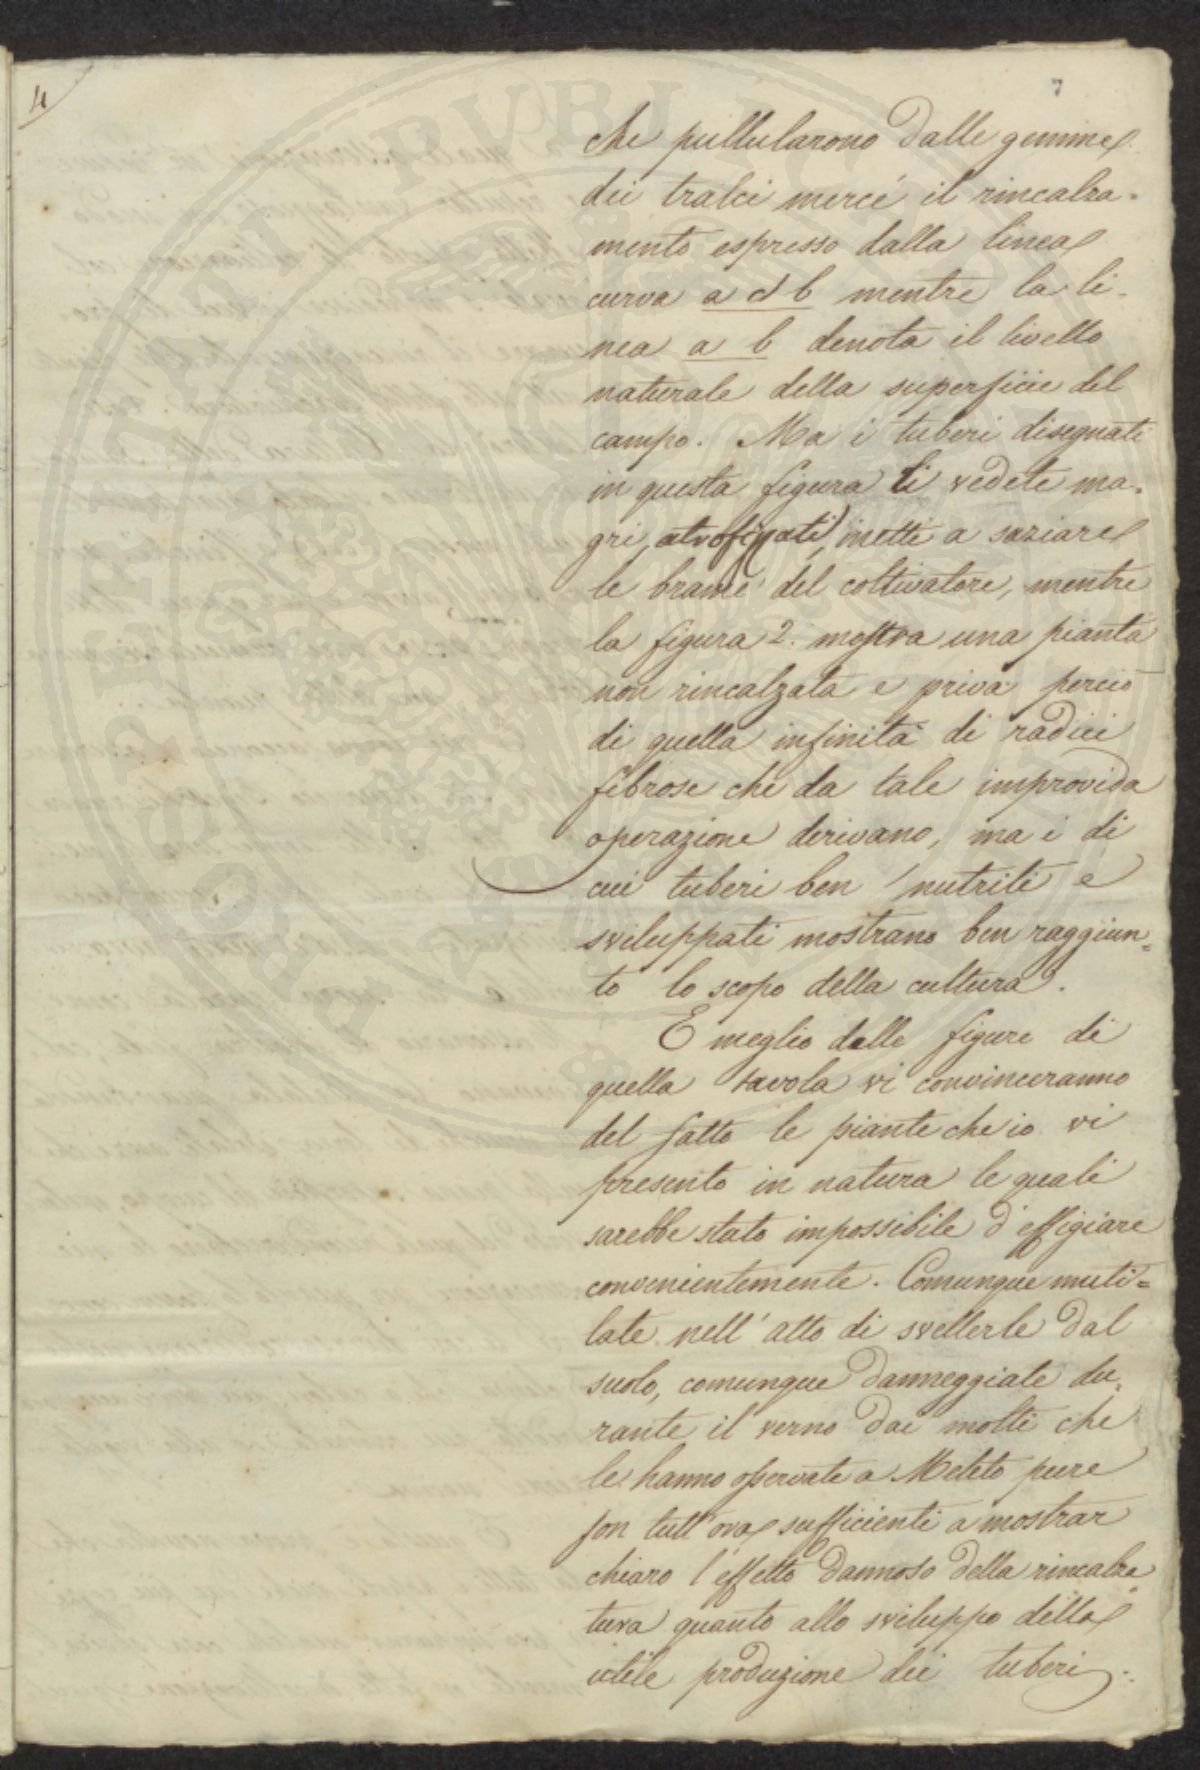 4
7
che pullularono dalle gemme
dei tralci mercé il rincalza-
mento espresso dalla linea
curva a d b mentre la li-
nea a b denota il livello
naturale della superficie del
campo. Ma i tuberi disegnati
in questa figura li vedete ma-
gri, atrofizzati, inetti a saziare
le brame del coltivatore, mentre
la figura 2. mostra una pianta
non rincalzata e priva perciò
di quella infinità di radici
fibrose che da tale improvida
operazione derivano, ma i di
cui tuberi ben nutriti e
sviluppati mostrano ben raggiun=
to lo scopo della cultura.
E meglio delle figure di
quella tavola vi convinceranno
del fatto le piante che io vi
presento in natura le quali
sarebbe stato impossibile d'effigiare
convenientemente. Comunque muti=
late nell'atto di svellerle dal
suolo, comunque danneggiate du-
rante il verno dai molti che
le hanno osservate a Meleto pure
son tutt'ora sufficienti a mostrar
chiaro l'effetto dannoso della rincalza
tura quanto allo sviluppo della
utile produzione dei tuberi.
POSSESSORI PVBLICAE VTILITATI